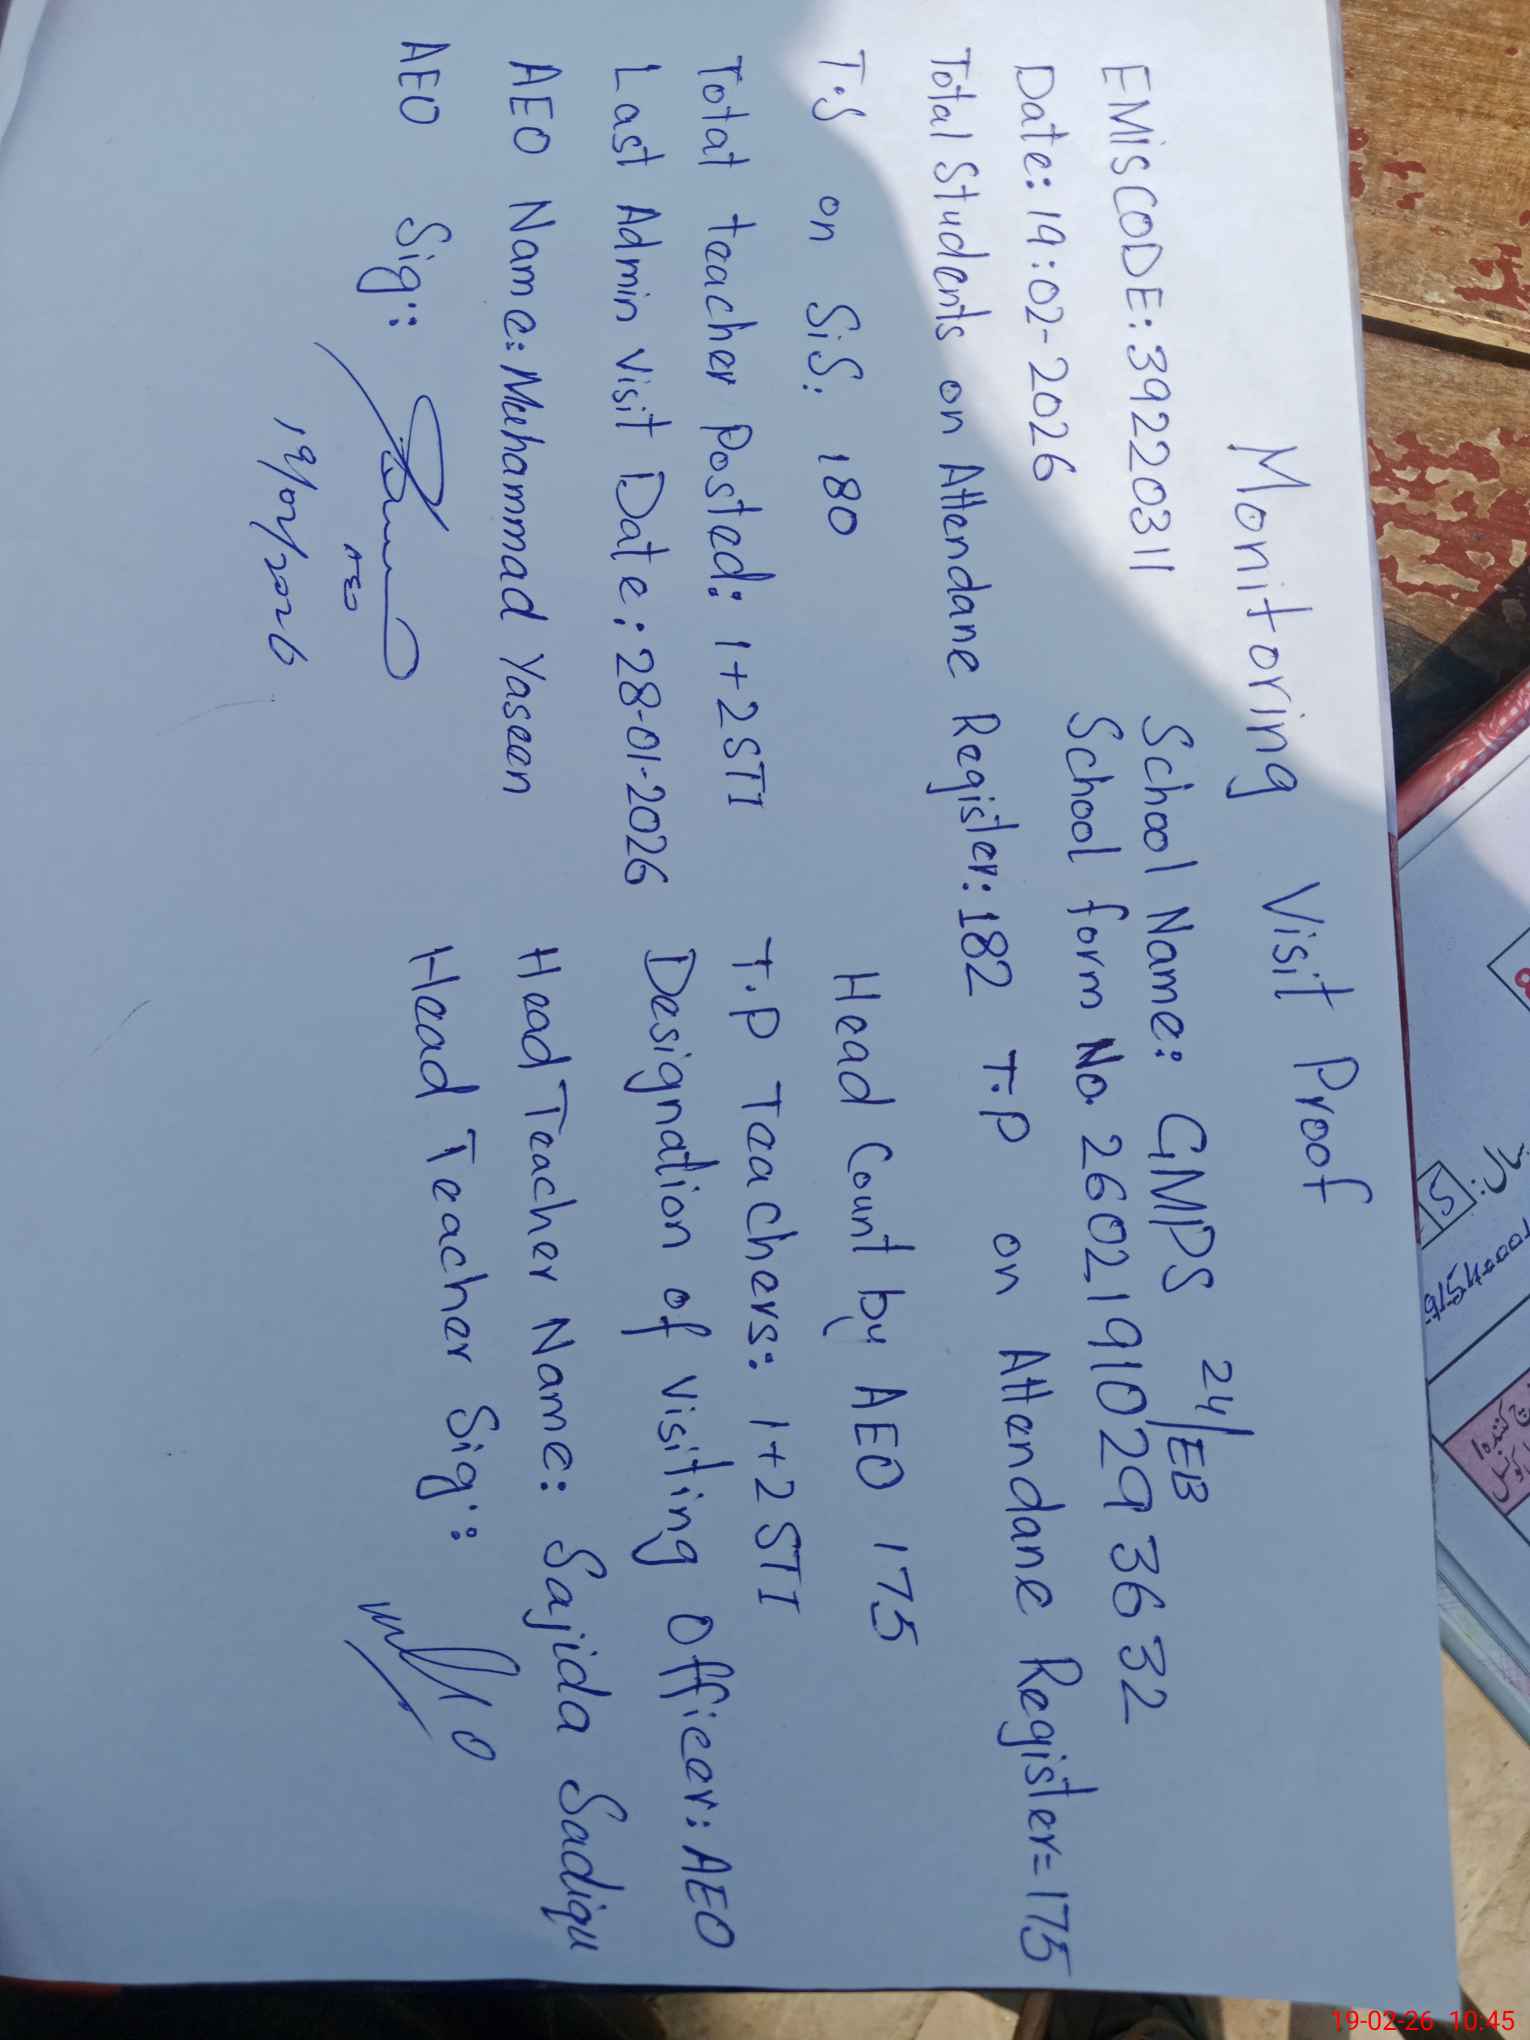 Monitoring Visit Proof
EMISCODE: 39220311 School Name: GMPS 24/EB
Date: 19:02-2026 School form No. 2602191029 3632
Total Students on Attendane Register: 182 T.P on Attendane Register=175
T.S on SiS: 180 Head Count by AEO 175
Totat teacher Posted: 1+2STI T.P Teachers: 1+2 STI
Last Admin visit Date: 28-01-2026 Designation of visiting officer: AEO
AEO Name: Muhammad Yaseen Head Teacher Name: Sajida Sadiqu
AEO Sig:: Head Teacher Sig::
AEO
19/02/2026
سال:
5
19-02-26 10:45